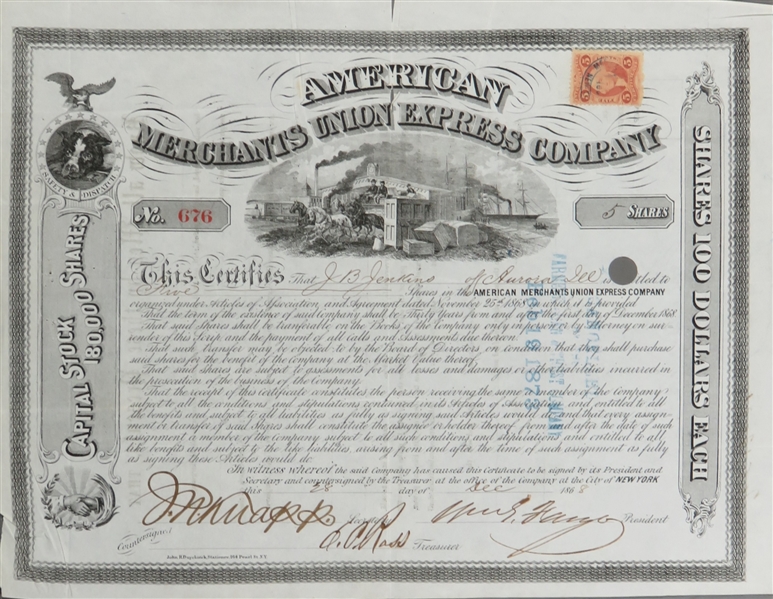 AMERICAN
MERCHANTS UNION EXPRESS COMPANY
SAFETY & DISPATCH
No. 676
5 SHARES
CAPITAL STOCK 180,000 SHARES
SHARES 100 DOLLARS EACH
This Certifies That J B Jenkins of Aurora is entitled to
Five Shares in the AMERICAN MERCHANTS UNION EXPRESS COMPANY
organized under Articles of Association and Agreement dated November 25th 1868 in which it is provided
That the term of the existence of said company shall be Thirty Years from and after the first day of December 1868.
That said Shares shall be transferable on the Books of the Company only in person or by Attorney on surrender of this Scrip and the payment of all calls and Assessments due thereon.
That such Transfer may be objected to by the Board of Directors on condition that they shall purchase
said shares for the benefit of the Company at the Market Value thereof.
That said shares are subject to assessments for all losses and damages or other liabilities incurred in
the prosecution of the business of the Company.
That the receipt of this certificate constitutes the person receiving the same a member of the company;
subject to all the conditions and stipulations contained in its Articles of Association, and entitled to all
the benefits and subject to all liabilities as fully as signing said Articles would do, and that every assign-
ment or transfer of said Shares shall constitute the assignee or holder thereof from and after the date of such
assignment a member of the company subject to all such conditions and stipulations and entitled to all
like benefits and subject to the like liabilities, arising from and after the time of such assignment as fully
as signing these Articles would do.
In witness whereof the said Company has caused this Certificate to be signed by its President and
Secretary and countersigned by the Treasurer at the office of the Company at the City of NEW YORK
this 28 day of Dec 1868
J. N. Knapp Secretary
Wm G. Fargo President
Countersigned
A. C. Ross Treasurer